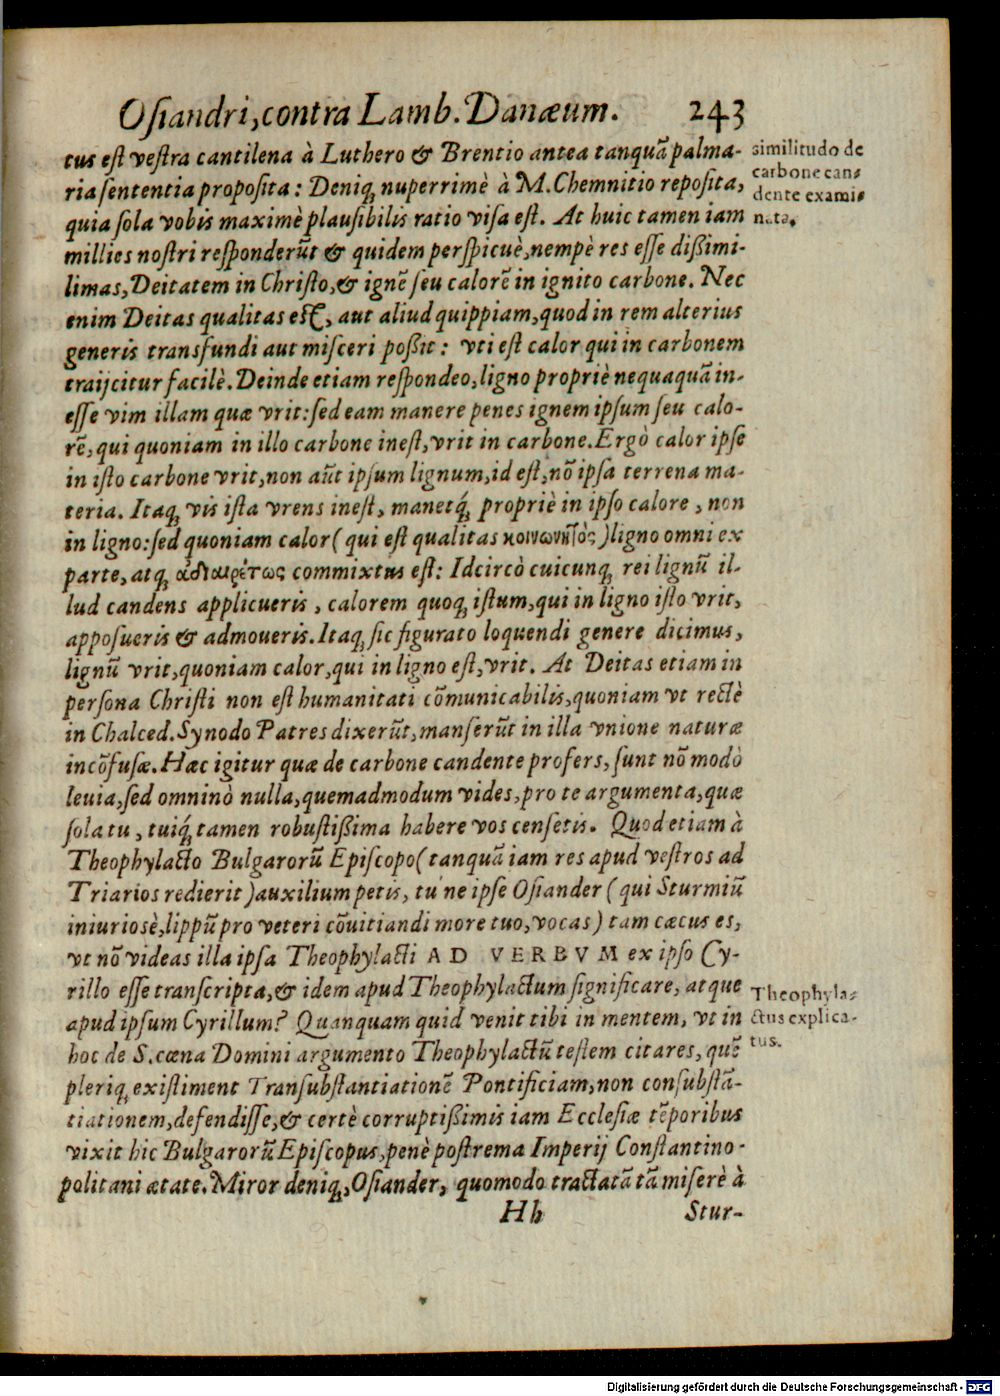 Osiandri, contra Lamb. Danæum. 243
tus est vestra cantilena à Luthero & Brentio antea tanquã palma-
ria sententia proposita: Deniq; nuperrimè à M. Chemnitio reposita,
quia sola vobis maximè plausibilis ratio visa est. At huic tamen iam
millies nostri responderũt & quidem perspicuè, nempè res esse dißimi-
limas, Deitatem in Christo, & ignẽ seu calorẽ in ignito carbone. Nec
enim Deitas qualitas est, aut aliud quippiam, quod in rem alterius
generis transfundi aut misceri poßit: vti est calor qui in carbonem
traijcitur facilè. Deinde etiam respondeo, ligno propriè nequaquã in-
esse vim illam quæ vrit: sed eam manere penes ignem ipsum seu calo-
rẽ, qui quoniam in illo carbone inest, vrit in carbone. Ergò calor ipse
in isto carbone vrit, non aũt ipsum lignum, id est, nõ ipsa terrena ma-
teria. Itaq; vis ista vrens inest, manetq́; propriè in ipso calore, non
in ligno: sed quoniam calor (qui est qualitas κοινωνητὸς) ligno omni ex
parte, atq; ἀδιαιρέτως commixtus est: Idcircò cuicunq; rei lignũ il-
lud candens applicueris, calorem quoq; istum, qui in ligno isto vrit,
apposueris & admoueris. Itaq; sic figurato loquendi genere dicimus,
lignũ vrit, quoniam calor, qui in ligno est, vrit. At Deitas etiam in
persona Christi non est humanitati cõmunicabilis, quoniam vt rectè
in Chalced. Synodo Patres dixerũt, manserũt in illa vnione naturæ
incõfusæ. Hæc igitur quæ de carbone candente profers, sunt nõ modò
leuia, sed omninò nulla, quemadmodum vides, pro te argumenta, quæ
sola tu, tuiq́; tamen robustißima habere vos censetis. Quod etiam à
Theophylacto Bulgarorũ Episcopo (tanquã iam res apud vestros ad
Triarios redierit) auxilium petis, tu ne ipse Osiander (qui Sturmiũ
iniuriosè, lippũ pro veteri cõuitiandi more tuo, vocas) tam cæcus es,
vt nõ videas illa ipsa Theophylacti AD VERBVM ex ipso Cy-
rillo esse transcripta, & idem apud Theophylactum significare, atque
apud ipsum Cyrillum? Quanquam quid venit tibi in mentem, vt in
hoc de S. cœna Domini argumento Theophylactũ testem citares, quẽ
pleriq; existiment Transubstantiationẽ Pontificiam, non consubstã-
tiationem, defendisse, & certè corruptißimis iam Ecclesiæ tẽporibus
vixit hic Bulgarorũ Episcopus, penè postrema Imperij Constantino-
politani ætate. Miror deniq;, Osiander, quomodo tractatã tã miserè à
Hh Stur-
similitudo de
carbone can-
dente exami-
nata.
Theophyla-
ctus explica-
tus.
Digitalisierung gefördert durch die Deutsche Forschungsgemeinschaft - DFG